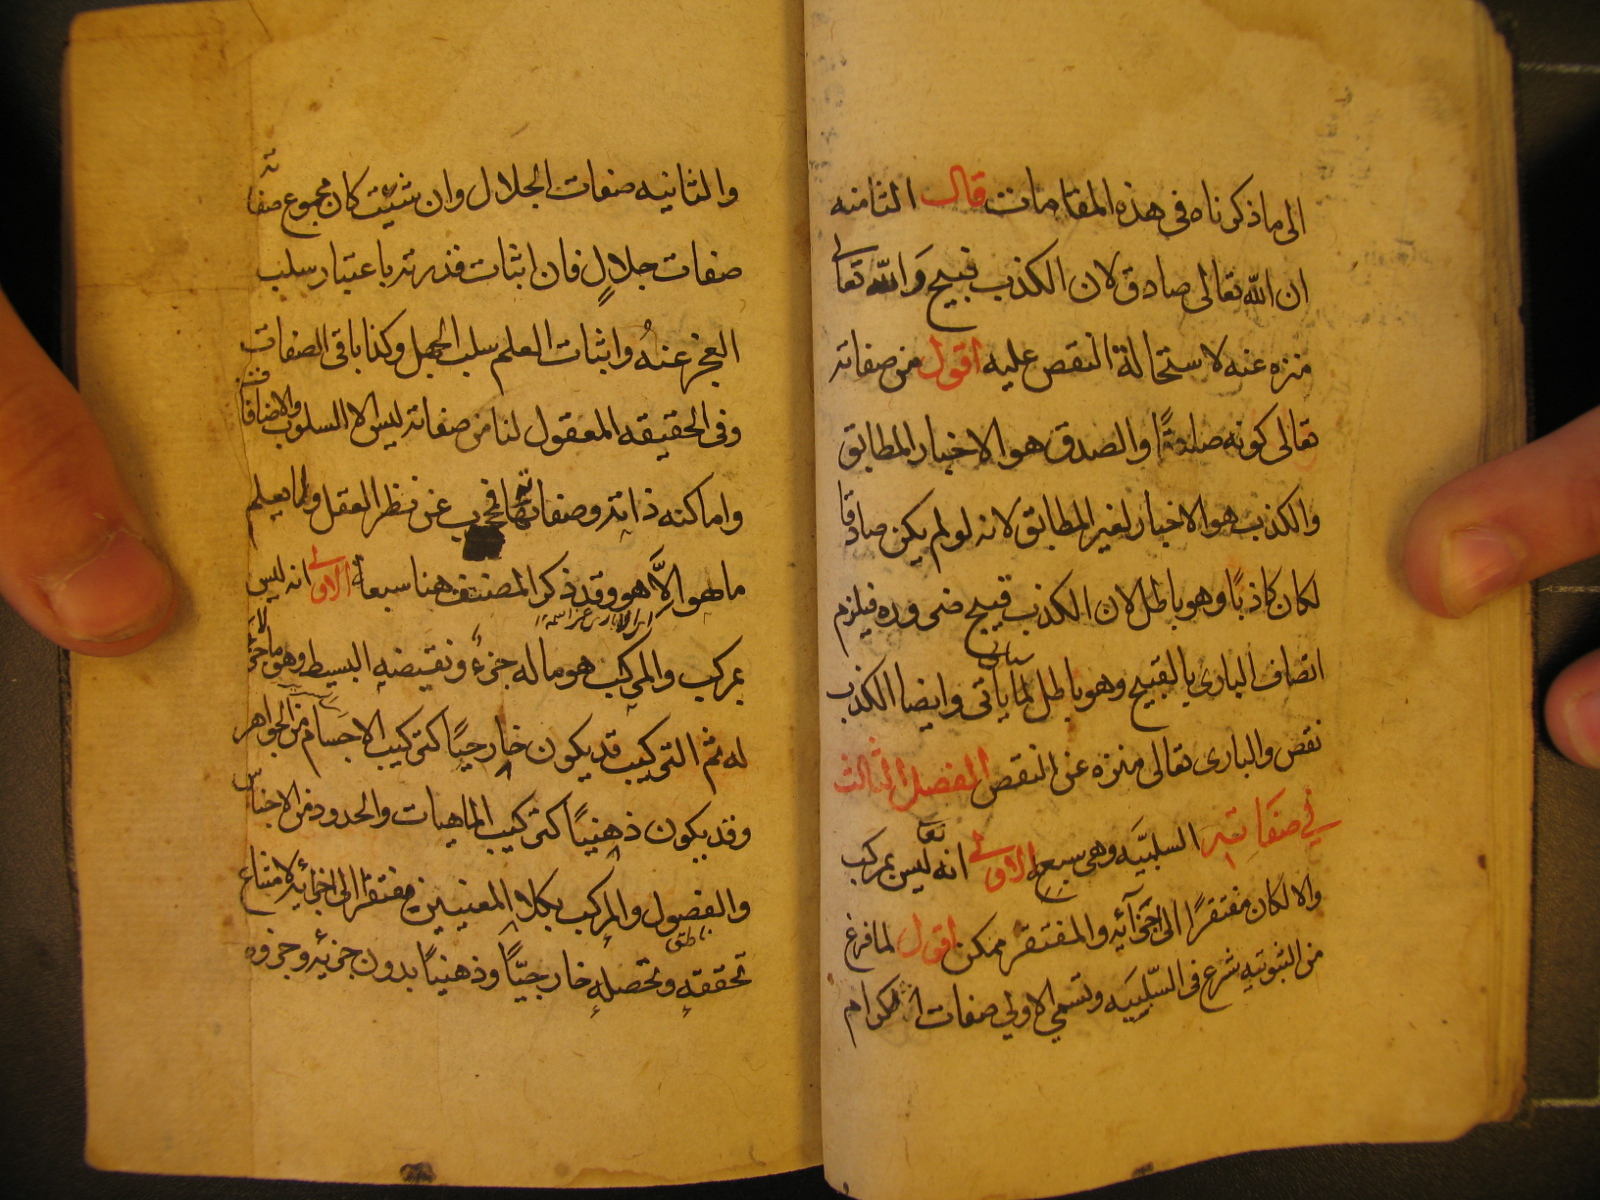 الى ما ذكرناه فى هذه المقامات قال الثامنه
ان الله تعالى صادق لان الكذب قبيح والله تعالى
منزه عنه لاستحالة النقص عليه اقول من صفاته
تعالى كونه صادقًا والصدق هو الاخبار المطابق
والكذب هو الاخبار الغير المطابق لانه لو لم يكن صادقا
لكان كاذبًا وهو باطل لان الكذب قبيح ضروره فيلزم
اتصاف البارى بالقبيح وهو باطل لما يأتى وايضا الكذب
نقص والبارى تعالى منزه عن النقص الفصل الثالث
في صفاته السلبيّه وهى سبعة الاولى انه تعا ليس بمركب
والا لكان مفتقرًا الى اجزآئه والمفتقر ممكن اقول لما فرغ
من الثبوتيه شرع فى السّلبيه وتسمي الاولي صفات الاكرام
والثانيه صفات الجلال وان شئت كان مجموع صفاته
صفات جلالٍ فان اثبات قدرته باعتبار سلب
العجز عنهُ واثبات العلم سلب الجهل وكذا باقى الصفات
وفى الحقيقه المعقول لنا من صفاته ليس الا السلوب والاضافات
واما كنه ذاته وصفاته فمحجوب عن نظر العقل ولا يعلم
ما هو الاَّ هو وقد ذكر المصنف هنا سبعة الاولى انه ليس
بمركب والمركب هو ما له جزء ونقيضه البسيط وهو ما لا جزء
له ثم التركيب قد يكون خارجيًا كتركيب الاجسام من الجواهر
وقد يكون ذهنيًا كتركيب الماهيات والحدود من الاجناس
والفصول والمركب بكلا المعنيين مفتقر الى اجزائه لامتناع
تحققه وتحصله خارجيًّا وذهنيًا بدون جزئه وجزوه